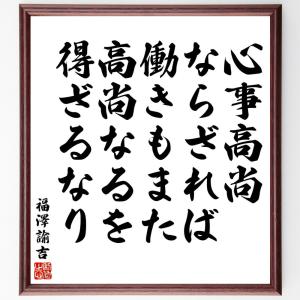 心事高尚
ならざれば
働きもまた
高尚なるを
得ざるなり
福澤諭吉